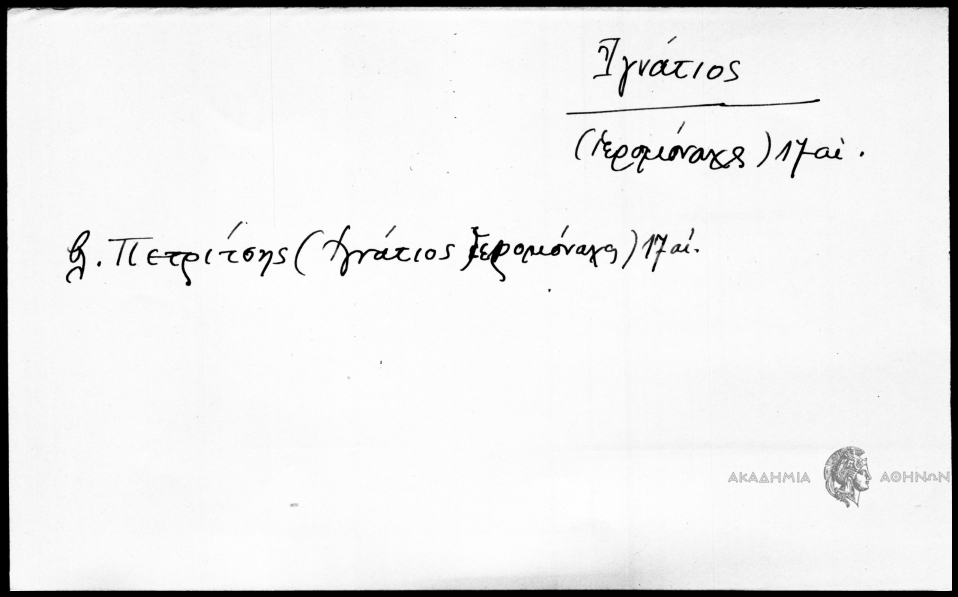 Ἰγνάτιος
(ἱερομόναχος) 17 αἰ.
β. Πετρίτσης (Ἰγνάτιος ἱερομόναχος) 17 αἰ.
ΑΚΑΔΗΜΙΑ ΑΘΗΝΩΝ